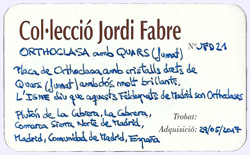 Col·lecció Jordi Fabre
ORTHOCLASA amb QUARS (Jumat) Nº JFD21
Placa de Orthoclasa amb cristalls drets de
Quars (Jumat) ambdós molt brillants.
L'IGME diu que aquests Feldespats de Madrid son Orthoclases
Plutón de La Cabrera, La Cabrera,
Comarca Sierra Norte de Madrid, Trobat:
Madrid, Comunidad de Madrid, España Adquisició: 28/05/2017